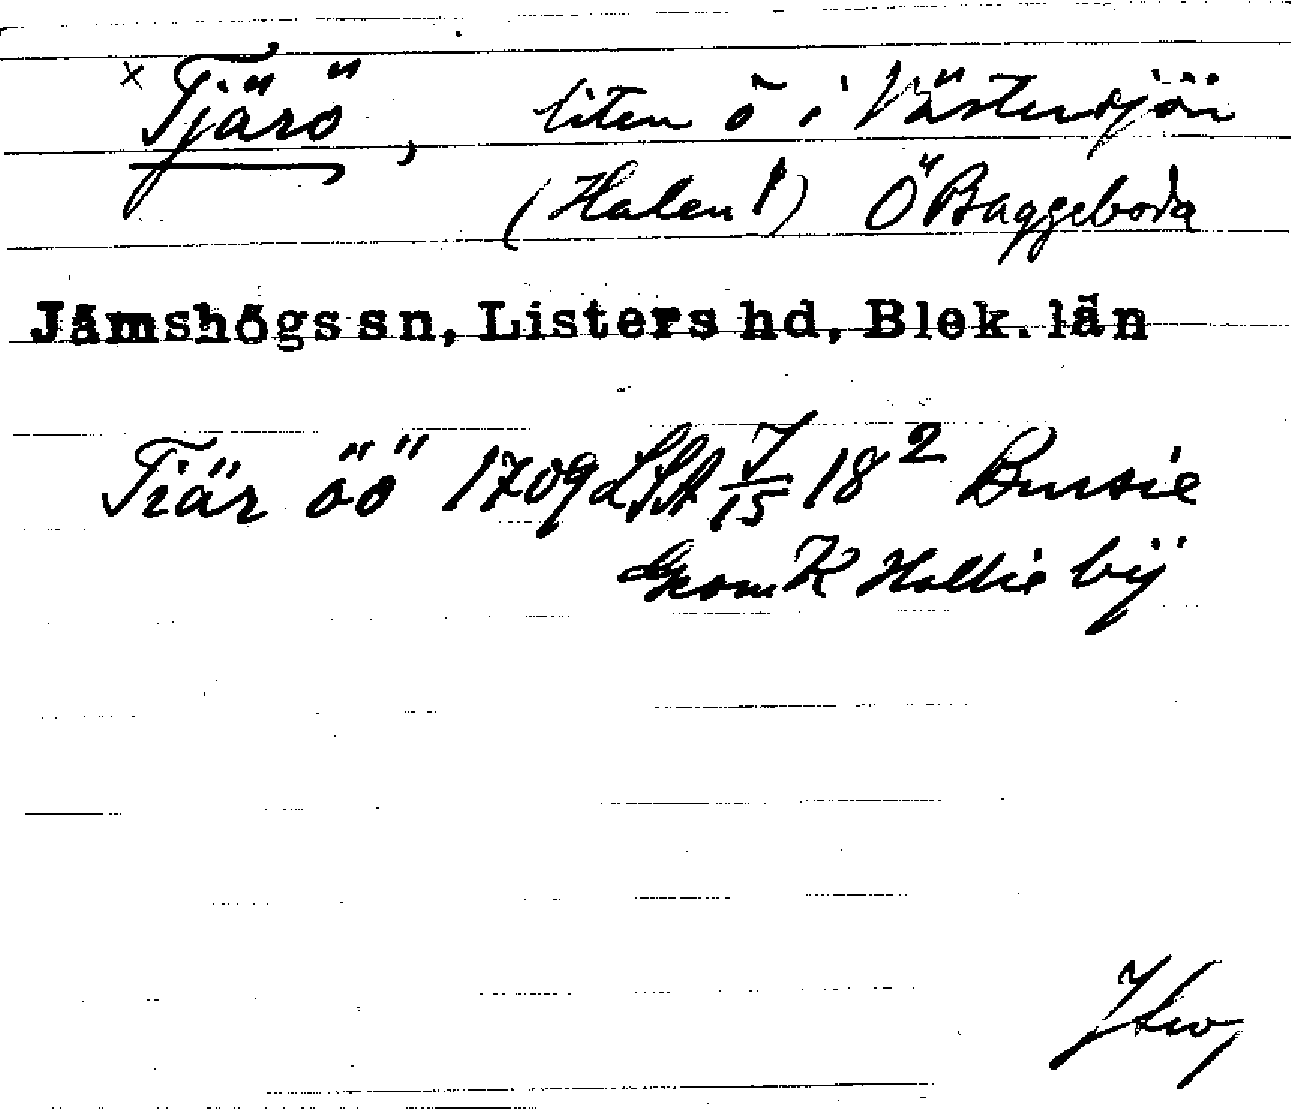 × Tjärö, liten ö i Västersjön
(Halen!) Ö Baggeboda
Jämshögs sn, Listers hd, Blek. län
Tiär öö 1709 LSA J/15 18² Bursie
Geom K Hollie bÿ